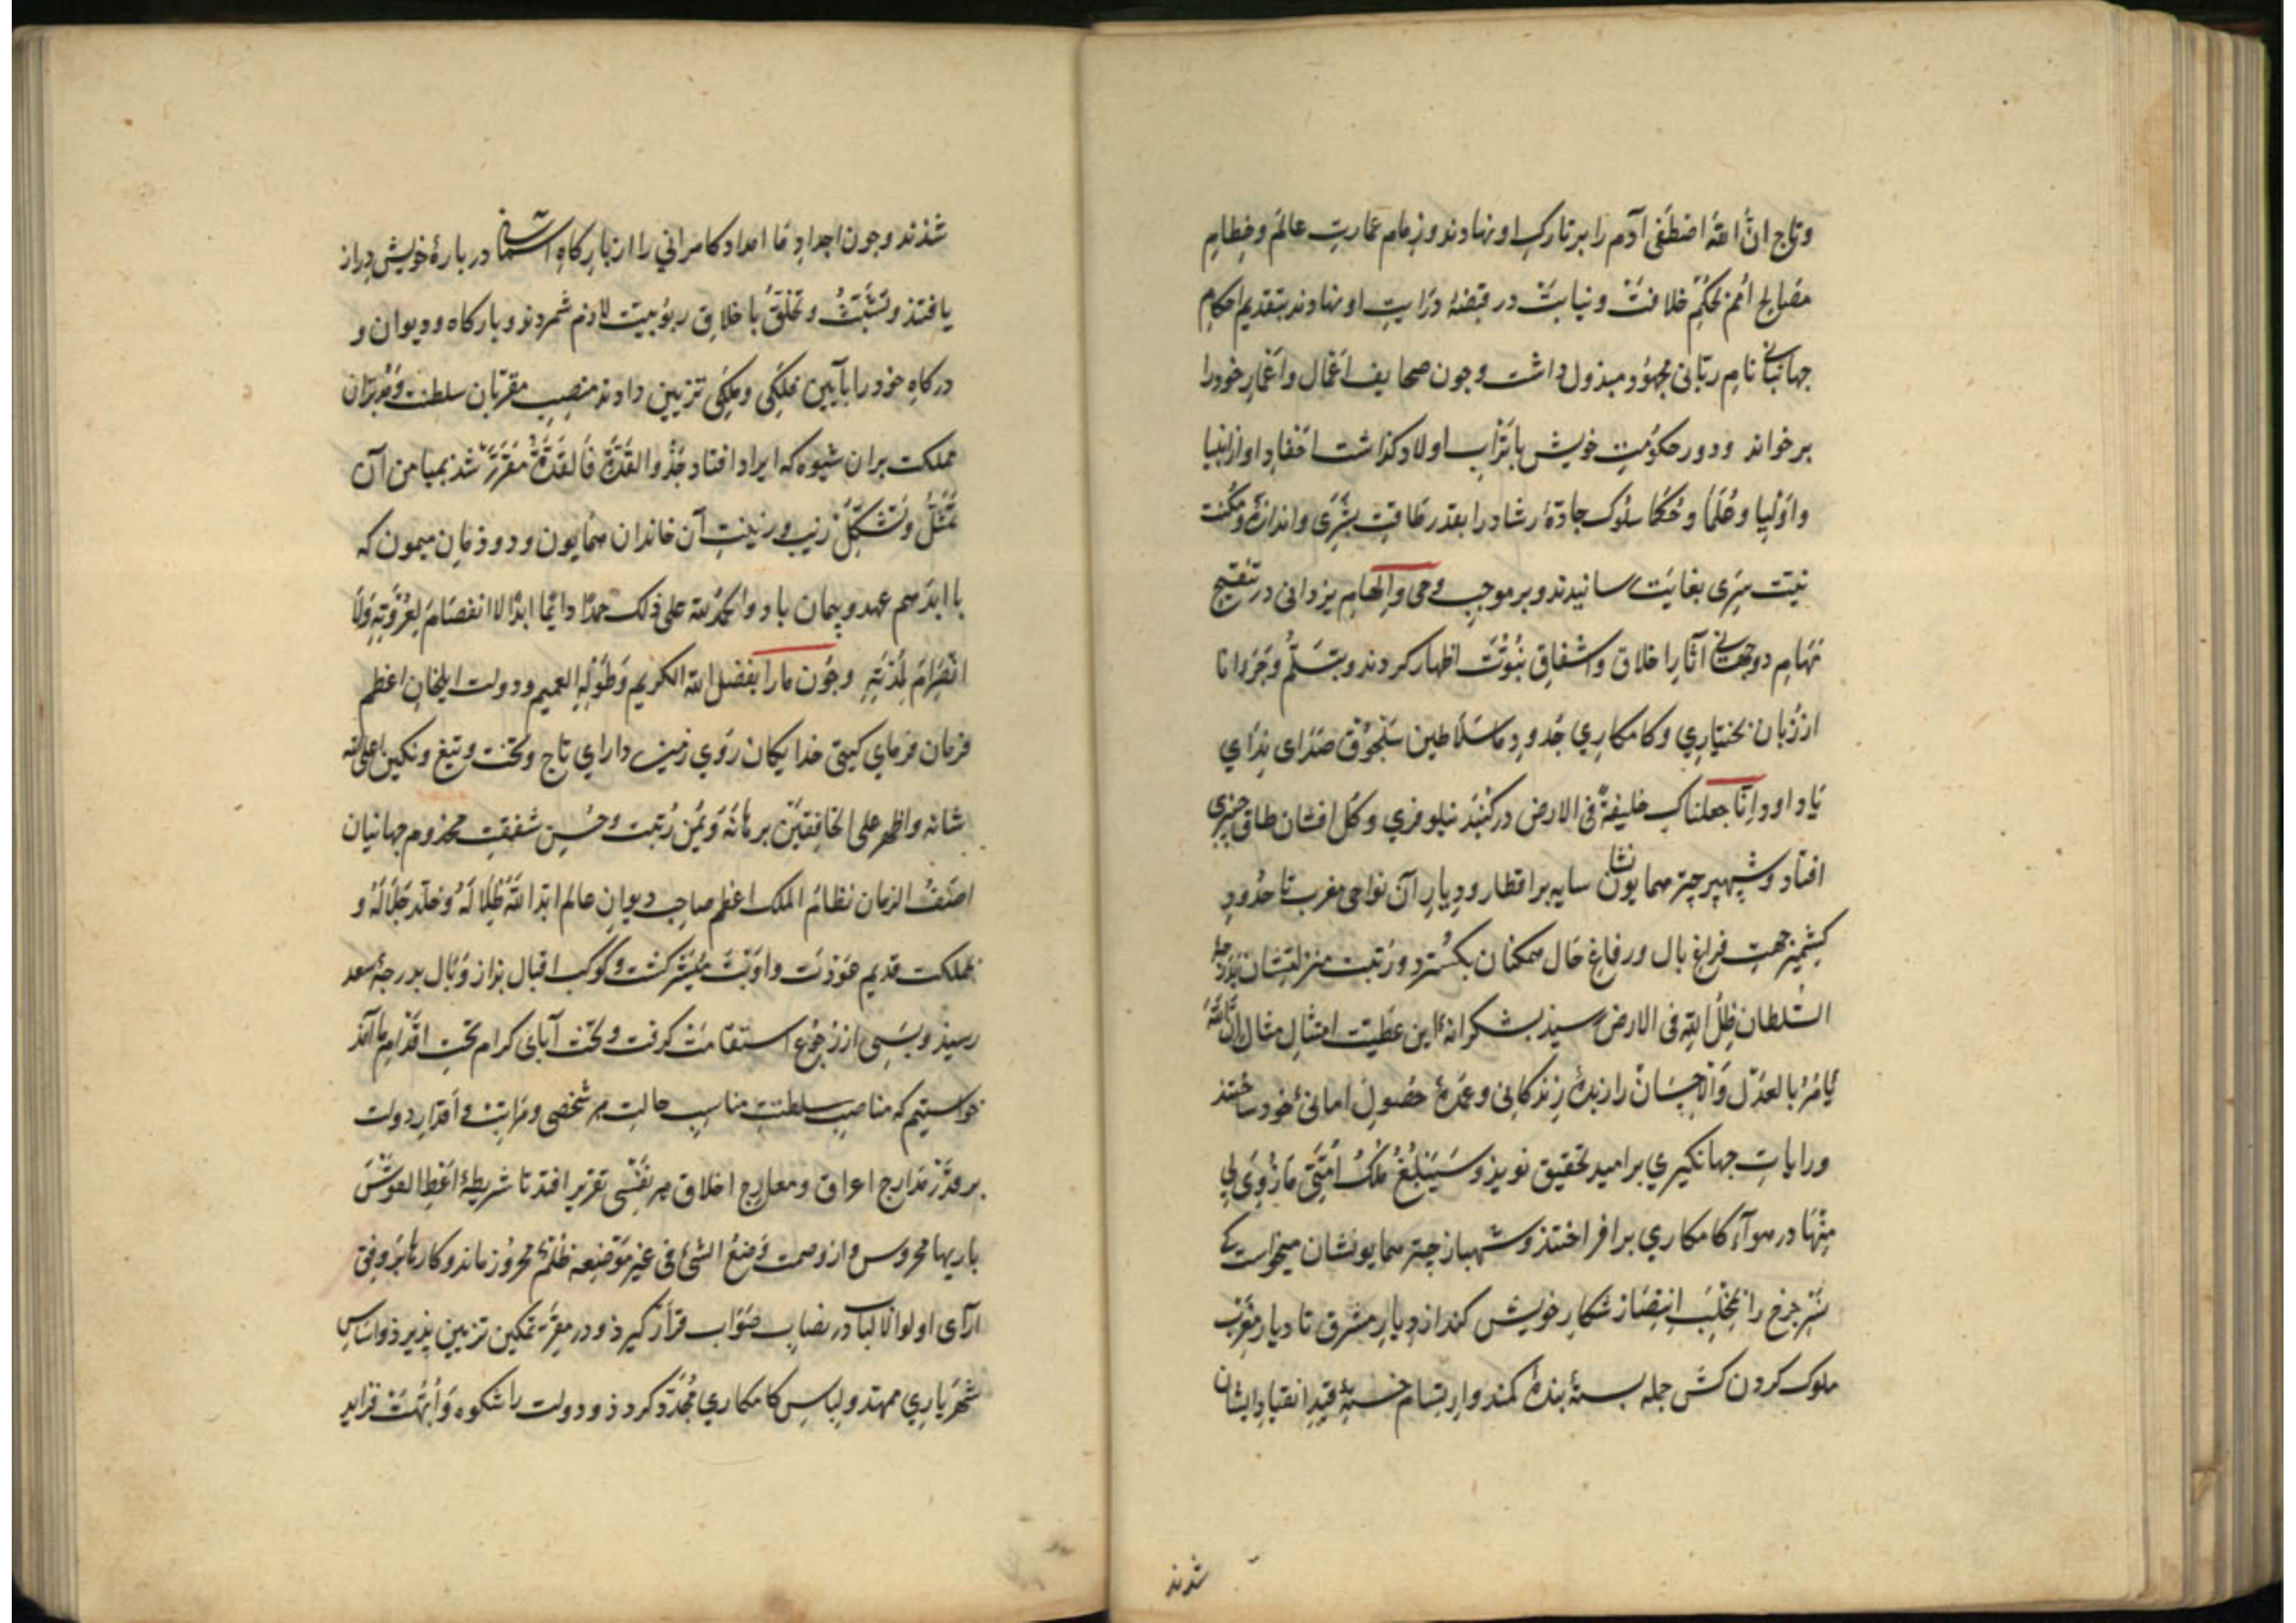 وتاج انّ الله اصْطَفی آدم را برتارک او نهادند و زمام عمارت عالم و خطام
مصالح امم بحکم خلافت و نیابت در قبضهٔ درایت او نهادند بتقدیم احکام
جهانبانی نام ربّانی مجهود مبذول داشت و جون صحایف اعمال و اعمار خود را
برخواند و دور حکومت خویش باتراب اولاد کذاشت احفاد او از انبیا
و اولیا و علما و حکما سلوک جادهٔ رشاد را بقدر طاقت بشری و اندازهٔ مکنت
بغایت رسانیدند و بر موجب وحی و الهام یزدانی در تنقیح
مهام دوجهانی آثار اخلاق و اشفاق نبوّت اظهار کردند و
از زبان بختیاری و کامکاری جدود ما سلاطین سلجوق صدرای ندای
یا داود انّا جعلناک خلیفةً فی الارض در کنبذ نیلوفری و کل افشان طاق جنبری
افتاد و شهپر چتر همایونشان سایه بر اقطار و دیار آن نواحی مغرب تا حدود
کشمیر جهت فراغ بال و رفاغ حال ممکنان بکسترد و رتبت منزلتشان بدرجهٔ
السّلطان ظلّ الله فی الارض رسیذ بشکرانهٔ این عطیّت امتثال مثال انّ الله
یأمر بالعدل و الاحسان را زبدهٔ زندکانی و عمدهٔ حصول امانی خود ساختند
و رایات جهانکیری بر امید تحقیق نوید و سیبلغ ملک امّتی ما زوی لی
منها در هوآء کامکاری برافراختند و شهباز چتر همایونشان میخواست که
نسر جرخ را بمخلب شکار خویش کند از دیار مشرق تا دیار مغرب
ملوک کردن کش جمله بستهٔ بند کمند و ارتسام خستهٔ قید انقیاد ایشان
شدند
شذند و جون اجداد ما امداد کامرانی را از بارکاه آسمانی در بارهٔ خویش دراز
یافتند و تشبّث و تخلّق باخلاق ربوبیت لازم شمردند و بارکاه و دیوان و
درکاه خود را بآیین فلکی و ملکی تزیین دادند منصب مقرّبان سلطنت و مدبّران
مملکت بران شیوه که ایراد افتاد حذو القذّة فالقذّة مقرّر شد بمیامن آن
تمثّل و تشکّل زیب و زینت آن خاندان همایون و دودمان میمون که
با ابد هم عهد و پیمان باد و الحمد لله علی ذلک حمدًا دایمًا ابدًا لا انفصام لعروته و لا
انصرام لمدّته و جون ما را بفضل الله الکریم و طوله العمیم و دولت ایلخان اعظم
فرمان فرمای کیتی خدایکان روی زمین دارای تاج و تخت و تیغ و نکین اعلی الله
شانه و اظهر علی الخافقین برهانه و یمن رتبت و حسن شفقت مخدوم جهانیان
آصف الزمان نظام الملک اعظم صاحب دیوان عالم ابّد الله ظلاله و خلّد جلاله و
مملکت قدیم عودت و اوبت میسّر کشت و کوکب اقبال از وبال بدرجهٔ سعد
رسیذ و بسی از رجوع استقامت کرفت و تخت آبای کرام تحت اقدام ما آمذ
خواستیم که مناصب سلطنت مناسب حالت هر شخصی و مراتب و اقدار دولت
بر قدر مدارج اعراق و معارج اخلاق هر نفسی تقریر افتد تا شریطهٔ اعط القوس
باریها محروس و از وصمت وضع الشئ فی غیر موضعه ظلم محروز ماند و کارها بر وفق
آرآی اولوا الالباب در نصاب صواب قرار کیرد و در مقرّ تمکین تزیین پذیرذ و اساس
شهریاری ممهّد و لباس کامکاری مجدّد کردذ و دولت را شکوه و ابّهت فزاید